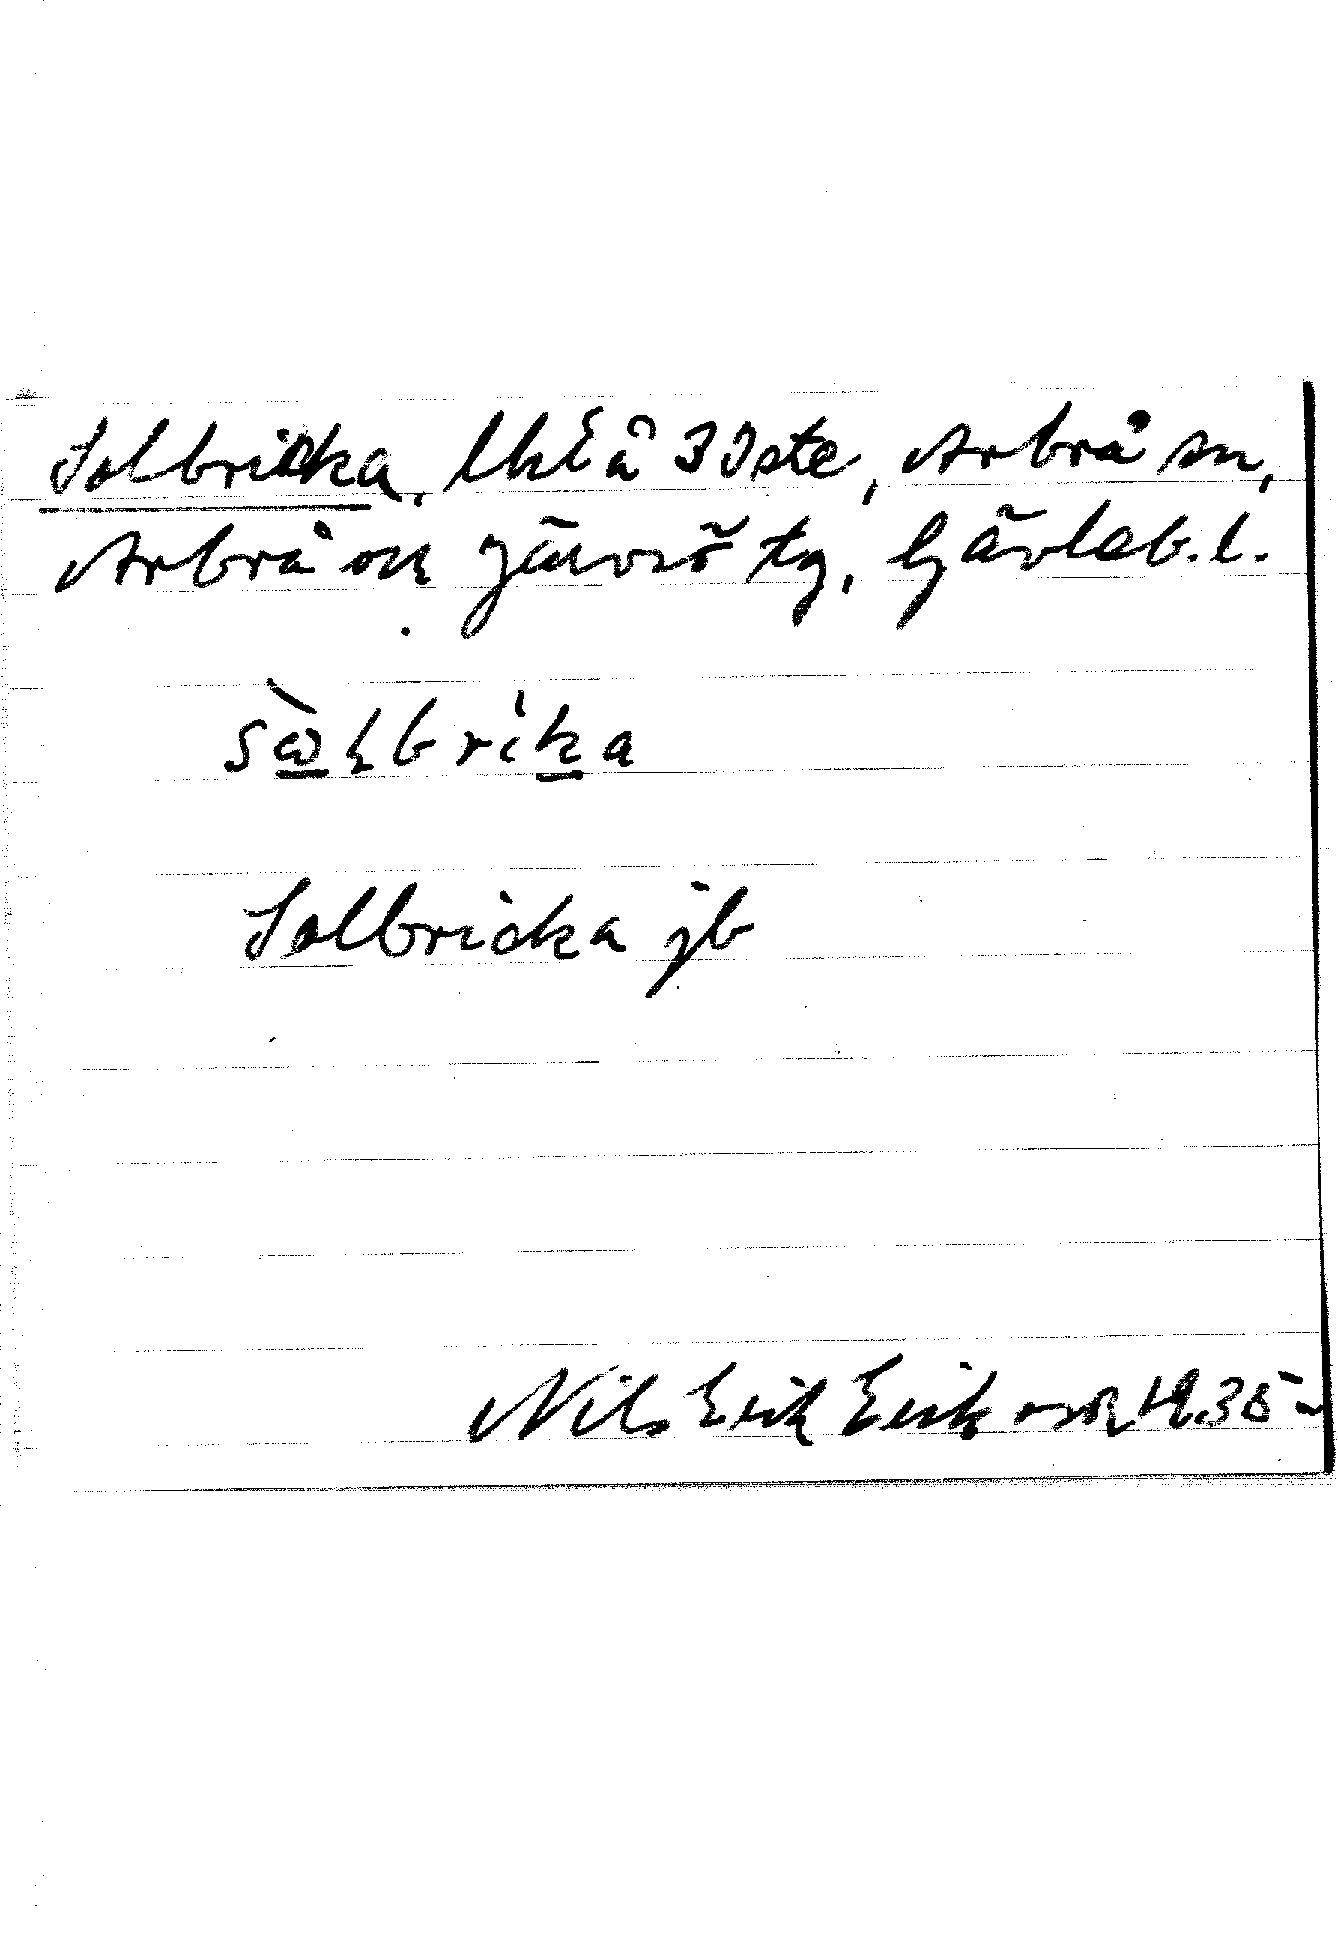 Solbricka, lht å 3 Iste, Arbrå sn,
Arbrå ok Järvsö tg, Gävleb. l.
sὼɭbrika
Solbricka jb
Nils Erik Eriksson 1935